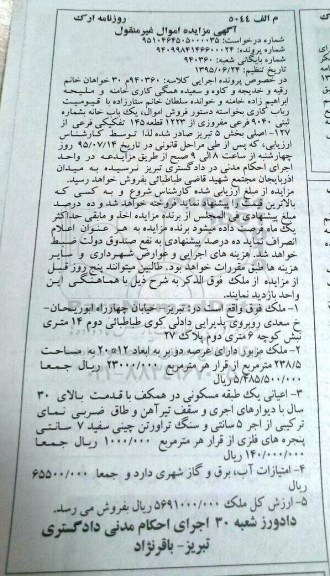 م الف ۵۰۴۴ روزنامه ارک
آگهی مزایده اموال غیرمنقول
شماره درخواست: ۹۵۱۰۴۶۴۵۰۵۰۰۰۰۳۵
شماره پرونده: ۹۴۰۹۹۸۴۱۴۶۶۰۰۰۲۴
شماره بایگانی شعبه: ۹۴۰۳۶۰
تاریخ تنظیم: ۱۳۹۵/۰۶/۲۴
در خصوص پرونده اجرایی کلاسه: ۹۴۰۳۶۰م ۳۰ خواهان خانم
رقیه و خدیجه و کاوه و سعیده همگی کاری خامنه و ملیحه
ابراهیم زاده خامنه و خوانده سلطان خانم ستارزاده با قیمومیت
رباب کاری بخواسته دستور فروش اموال، یک باب خانه بشماره
ثبتی ۹۰۴۰ فرعی مفروزی از ۱۲۲۳ قطعه ۱۴۵ تفکیکی فرعی از
۱۲۷- اصلی بخش ۵ تبریز صادر شده لذا توسط کارشناس
ارزیابی، که پس از طی مراحل قانونی در تاریخ ۹۵/۰۷/۱۴ روز
چهارشنبه از ساعت ۸ الی ۹ صبح از طریق مزایده در واحد
اجرای احکام مدنی در دادگستری تبریز نرسیده به میدان
آذربایجان مجتمع شهید قاضی طباطبائی بفروش خواهد رسید.
مزایده از مبلغ ارزیابی شده کارشناس شروع و به کسی که
بالاترین قیمت را پیشنهاد نماید فروخته خواهد شد و ده درصد
مبلغ پیشنهادی فی المجلس از برنده مزایده اخذ و مابقی حداکثر
یک ماه فرصت داده میشود برنده مزایده به هر عنوان اعلام
انصراف نماید ده درصد پیشنهادی به نفع صندوق دولت ضبط
خواهد شد. هزینه های اجرایی و عوارض شهرداری و سایر
هزینه ها طبق مقررات خواهد بود. طالبین میتوانند پنج روز قبل
از مزایده از ملک فوق الذکر به شرح ذیل با هماهنگی این
واحد بازدید نمایند.
۱- ملک فوق واقع است در: تبریز- خیابان چهارراه ابوریحان-
خ سعدی روبروی پذیرایی دادلی کوی طباطبائی دوم ۱۴ متری
نبش کوچه ۶ متری دوم پلاک ۲۷
۲- ملک مزبور دارای عرصه دو بر به ابعاد ۱۲*۲۰ به مساحت
۲۳۸/۵ مترمربع از قرار هر مترمربع ۲۳۰۰۰/۰۰۰ ریال جمعا
۵/۴۸۵/۵۰۰/۰۰۰ ریال
۳- اعیانی یک طبقه مسکونی در همکف با قدمت بالای ۳۰
سال با دیوارهای آجری و سقف تیرآهن و طاق ضربی نمای
ترکیبی از آجر ۵ سانتی و سنگ تراورتن چینی سفید ۷ سانتی
پنجره های فلزی از قرار هر مترمربع ۱۰۰۰/۰۰۰ ریال جمعا
۱۴۰/۰۰۰/۰۰۰ ریال
۴- امتیازات آب، برق و گاز شهری دارد و جمعا ۶۵۵۰۰/۰۰۰
ریال
۵- ارزش کل ملک ۵۶۹۱۰۰۰/۰۰۰ ریال بفروش می رسد.
دادورز شعبه ۳۰ اجرای احکام مدنی دادگستری
تبریز- باقرنژاد